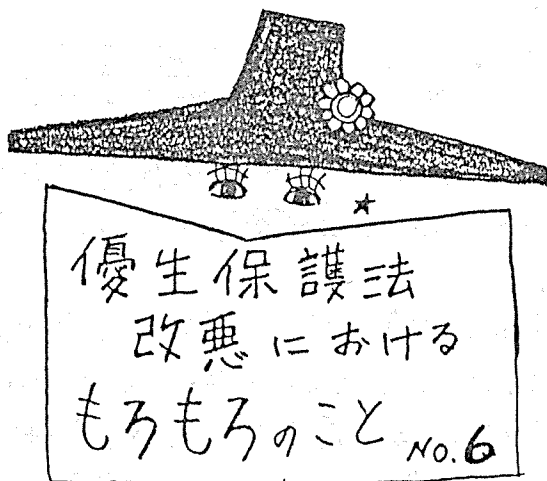 優生保護法
改悪における
もろもろのこと NO.6